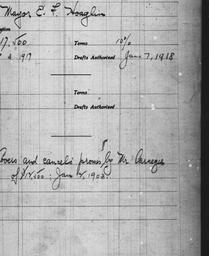 Mayor E. F. Hoaglin
17,500 Terms 10%
4 917 Drafts Authorized June 7, 1918
Terms
Drafts Authorized
and cancels promise by Mr. Carnegie
of $12,500: Jan 1905